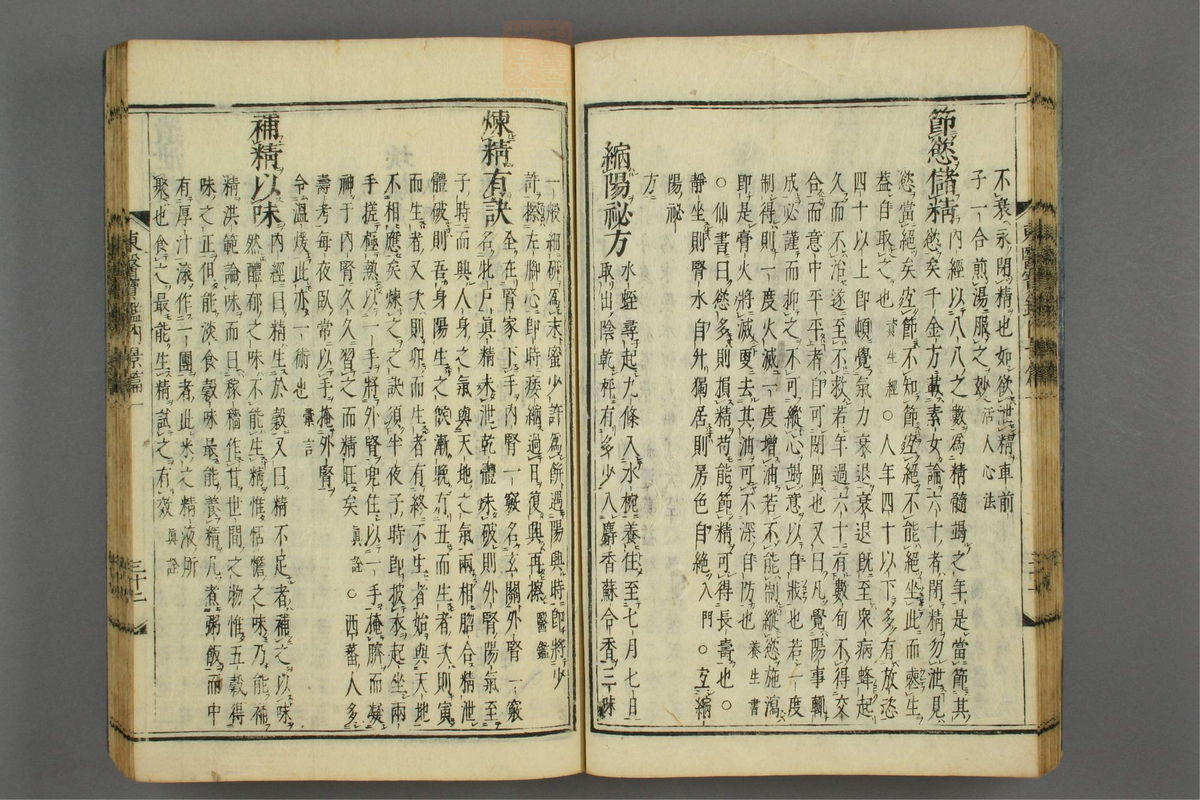 不衰永閉精也如欲泄精車前
子一合煎湯服之妙活人心法
節慾儲精
內經以八八之數爲精髓竭之年是當節其
慾矣千金方載素女論六十者閉精勿泄見
慾當絕矣宜節不知節宜絕不能絕坐此而喪生
蓋自取之也資生經○人年四十以下多有放恣
四十以上即頓覺氣力衰退衰退旣至衆病蜂起
久而不治遂至不救若年過六十有數旬不得交
合而意中平平者即可閉固也又曰凡覺陽事輒
盛必謹而抑之不可縱心竭意以自戕也若一度
制得則一度火滅一度增油若不能制縱慾施瀉
即是膏火將滅更去其油可不深自防也養生書
○仙書曰慾多則損精苟能節精可得長壽也○
靜坐則腎水自升獨居則房色自絕入門○宜縮
陽秘
方
縮陽祕方
水蛭尋起九條入水椀養住至七月七日
取出陰乾秤有多少入麝香蘇合香三味
一般細硏爲末蜜少許爲餠遇陽興時即將少
許擦左脚心即時痿縮過日復興再擦醫鑑
煉精有訣
全在腎家下手內腎一竅名玄關外腎一竅
名牝戶眞精未泄乾體未破則外腎陽氣至
子時而興人身之氣與天地之氣兩相脗合精泄
體破則吾身陽生之候漸晩有丑而生者次則寅
而生者又次則卯而生者有終不生者始與天地
不相應矣煉之之訣須半夜子時即披衣起坐兩
手搓極熱以一手將外腎兜住以一手掩臍而凝
神于內腎久久習之而精旺矣眞詮○西蕃人多
壽考每夜臥常以手掩外腎
令溫煖此亦一術也彙言
補精以味
內經曰精生於穀又曰精不足者補之以味
然醴郁之味不能生精惟恬憺之味乃能補
精洪範論味而曰稼穡作甘世間之物惟五穀得
味之正但能淡食穀味最能養精凡煮粥飯而中
有厚汁滾作一團者此米之精液所
聚也食之最能生精試之有效眞詮
東醫寶鑑內景篇一
三十二